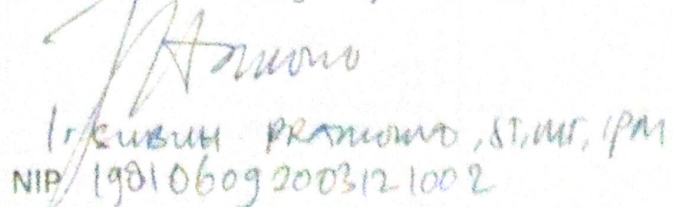 Ir SUBUH PRAMONO, ST, MT, IPM
NIP 198106092003121002